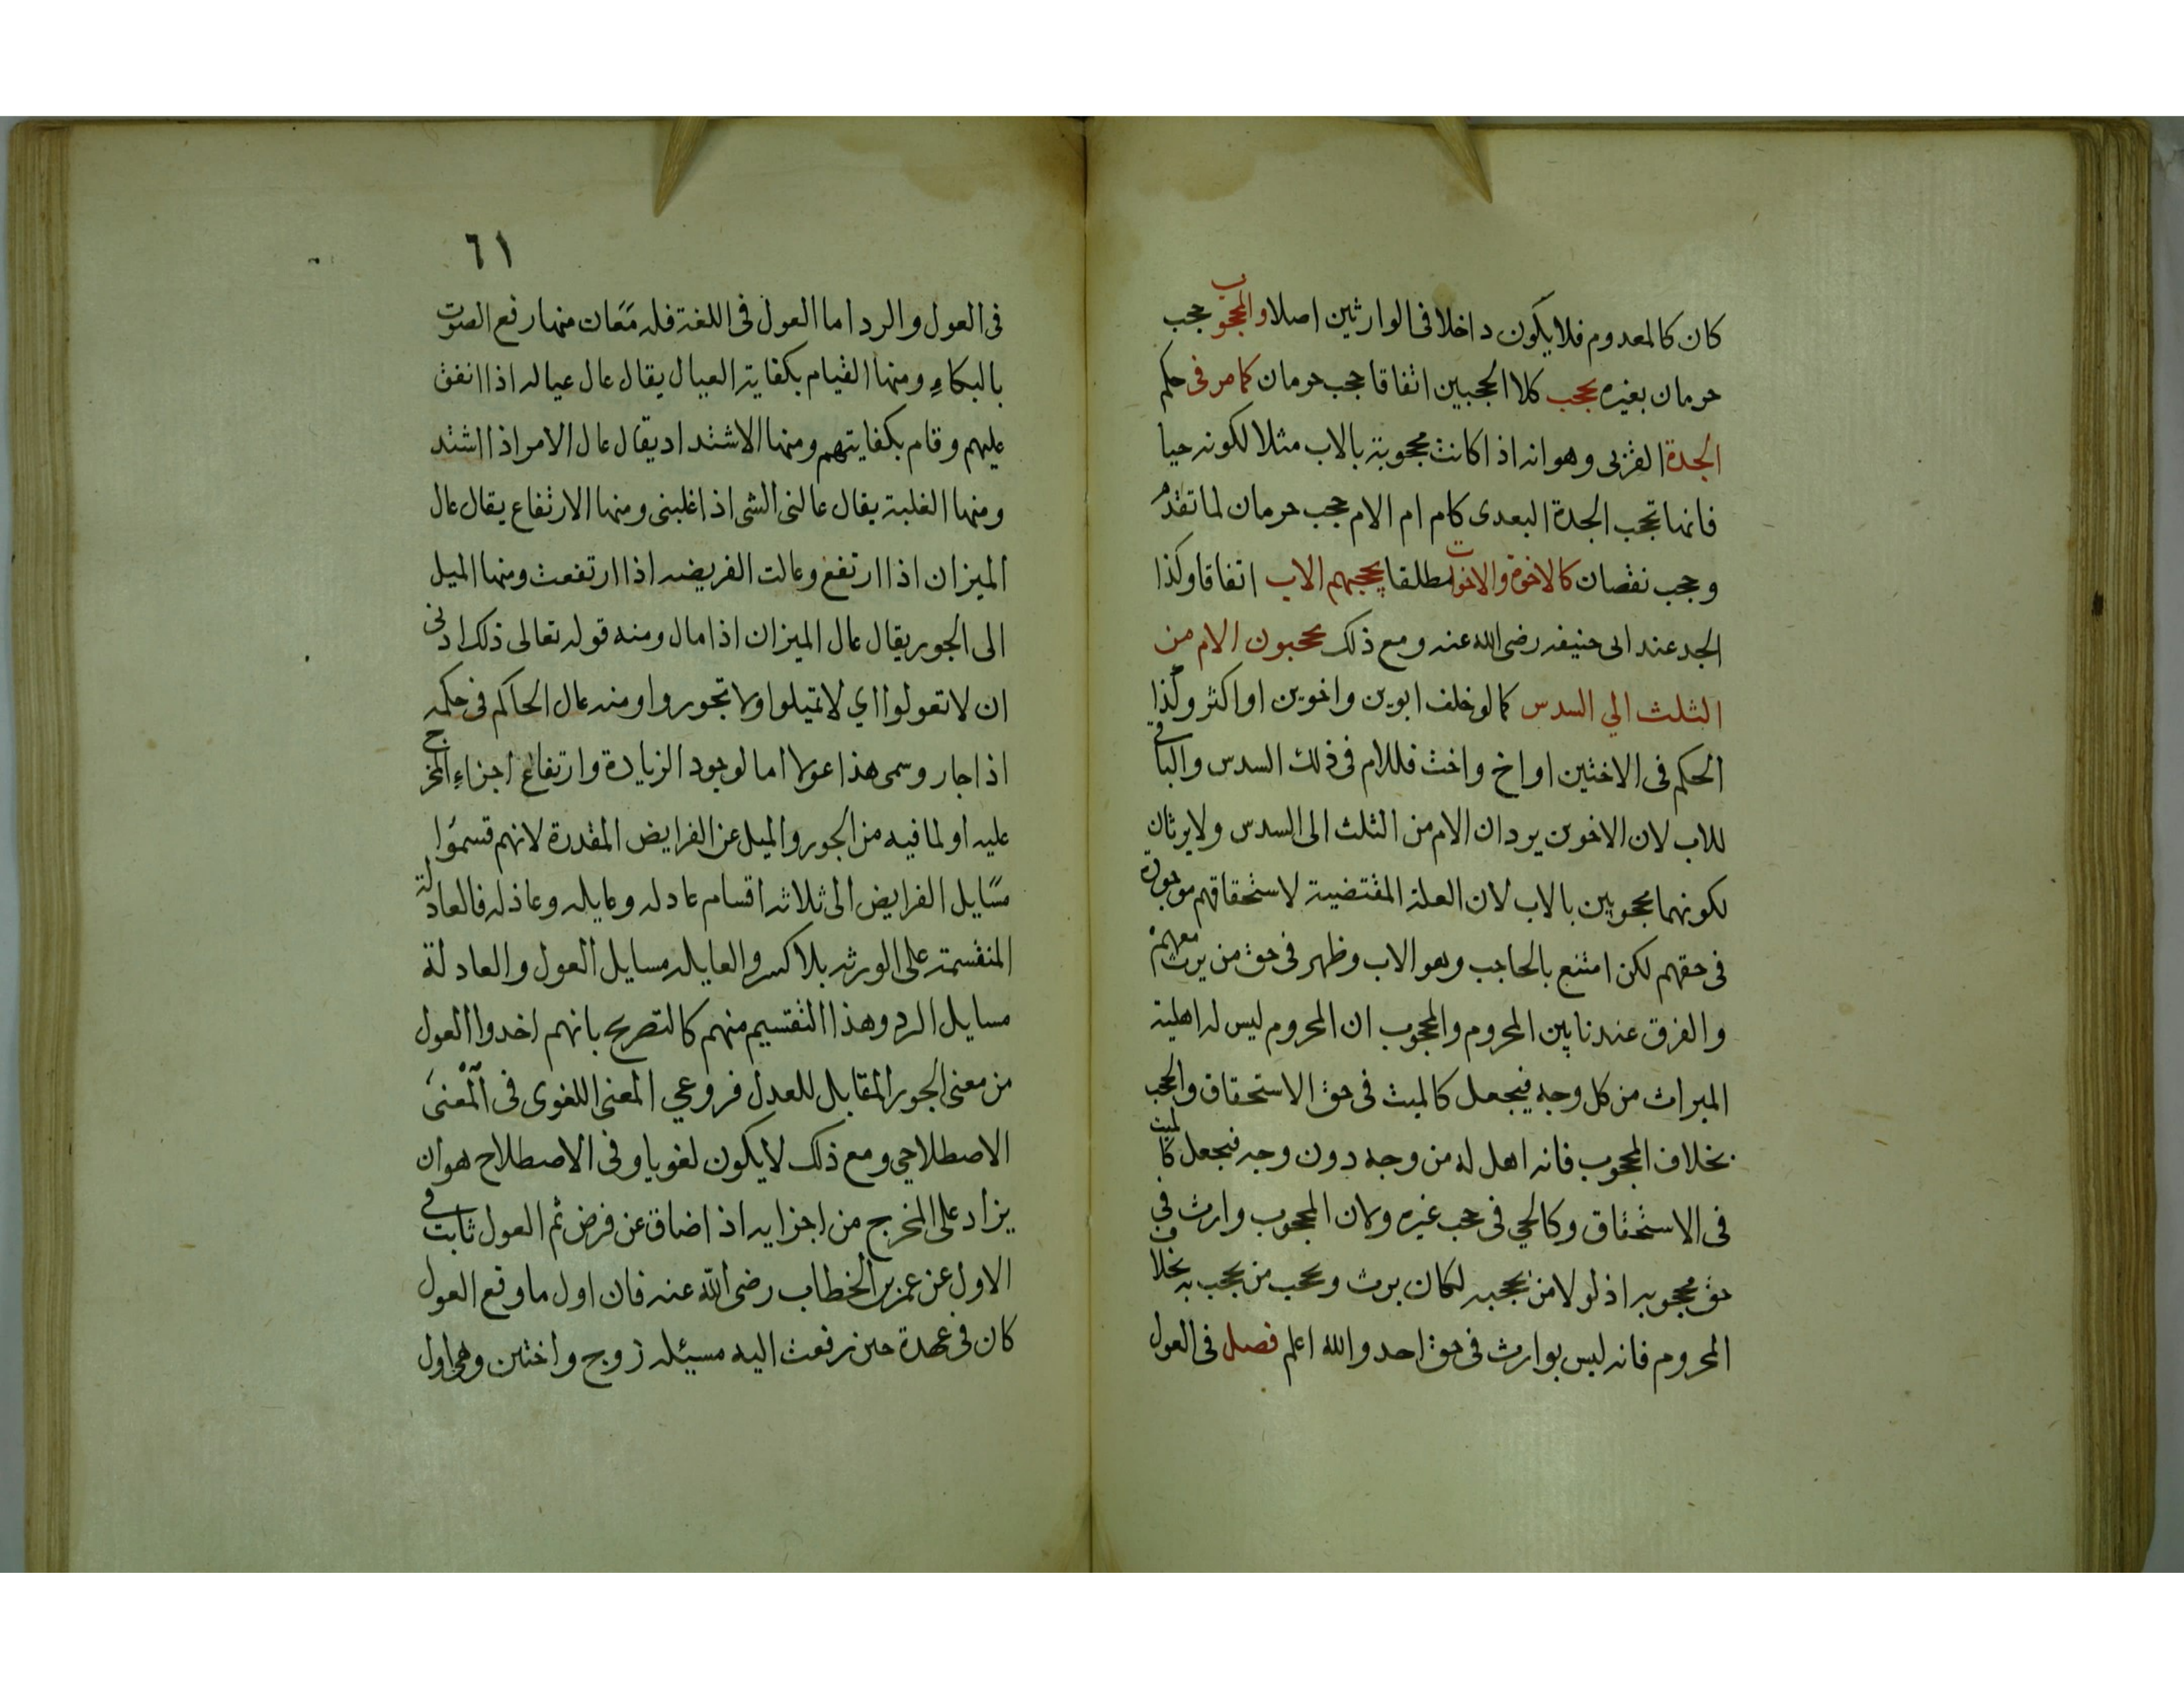 كان كالمعدوم فلا يكون داخلا فى الوارثين اصلا والمحجوب حجب
حرمان بغيره يحجب كلا الحجبين اتفاقا حجب حرمان كما مر فى حكم
الجدة القربى وهو انه اذا كانت محجوبة بالاب مثلا لكونه حيا
فانها تحجب الجدة البعدى كام ام الام حجب حرمان لما تقدم
وحجب نقصان كالاخوة والاخوات مطلقا يحجبهم الاب اتفاقا وكذا
الجد عند ابى حنيفه رضى الله عنه ومع ذلك يحجبون الام من
الثلث الي السدس كما لو خلف ابوين واخوين او اكثر وكذا
الحكم فى الاختين او اخ واخت فللام فى ذلك السدس والباقى
للاب لان الاخوين يردان الام من الثلث الى السدس ولا يرثان
لكونهما محجوبين بالاب لان العلة المقتضية لاستحقاقهم موجودة
فى حقهم لكن امتنع بالحاجب وهو الاب وظهر فى حق من يرث معهم
والفرق عندنا بين المحروم والمحجوب ان المحروم ليس له اهلية
الميراث من كل وجه فيجعل كالميت فى حق الاستحقاق والحجب
بخلاف المحجوب فانه اهل له من وجه دون وجه فيجعل كالميت
فى الاستحقاق وكالحي فى حجب غيره ولان المحجوب وارث في
حق محجوبه اذ لولا من يحجبه لكان يرث ويحجب من يحجب به بخلاف
المحروم فانه ليس بوارث فى حق احد والله اعلم فصل فى العول
٦١
فى العول والرد اما العول فى اللغة فله معان منها رفع الصوت
بالبكاء ومنها القيام بكفاية العيال يقال عال عياله اذا انفق
عليهم وقام بكفايتهم ومنها الاشتداد يقال عال الامر اذا اشتد
ومنها الغلبة يقال عالنى الشى اذا غلبنى ومنها الارتفاع يقال عال
الميزان اذا ارتفع وعالت الفريضه اذا ارتفعت ومنها الميل
الى الجور يقال عال الميزان اذا مال ومنه قوله تعالى ذلك ادنى
ان لا تعولوا اي لا تميلوا ولا تجوروا ومنه عال الحاكم فى حكمه
اذا جار وسمى هذا عولا اما لوجود الزيادة وارتفاع اجزاء المخرج
عليه او لما فيه من الجور والميل عن الفرايض المقدرة لانهم قسموا
مسايل الفرايض الى ثلاثه اقسام عادله وعايله وعاذله فالعادلة
المنقسمة على الورثه بلا كسر والعايله مسايل العول والعادلة
مسايل الرد وهذا التقسيم منهم كالتصريح بانهم اخدوا العول
من معنى الجور المقابل للعدل فروعي المعنى اللغوى فى المعنى
الاصطلاحي ومع ذلك لا يكون لغويا وفى الاصطلاح هو ان
يزاد على المخرج من اجزايه اذا ضاق عن فرض ثم العول ثابت فى
الاول عن عمر بن الخطاب رضى الله عنه فان اول ما وقع العول
كان فى عهدة حين رفعت اليه مسيئله زوج واختين وهى اول